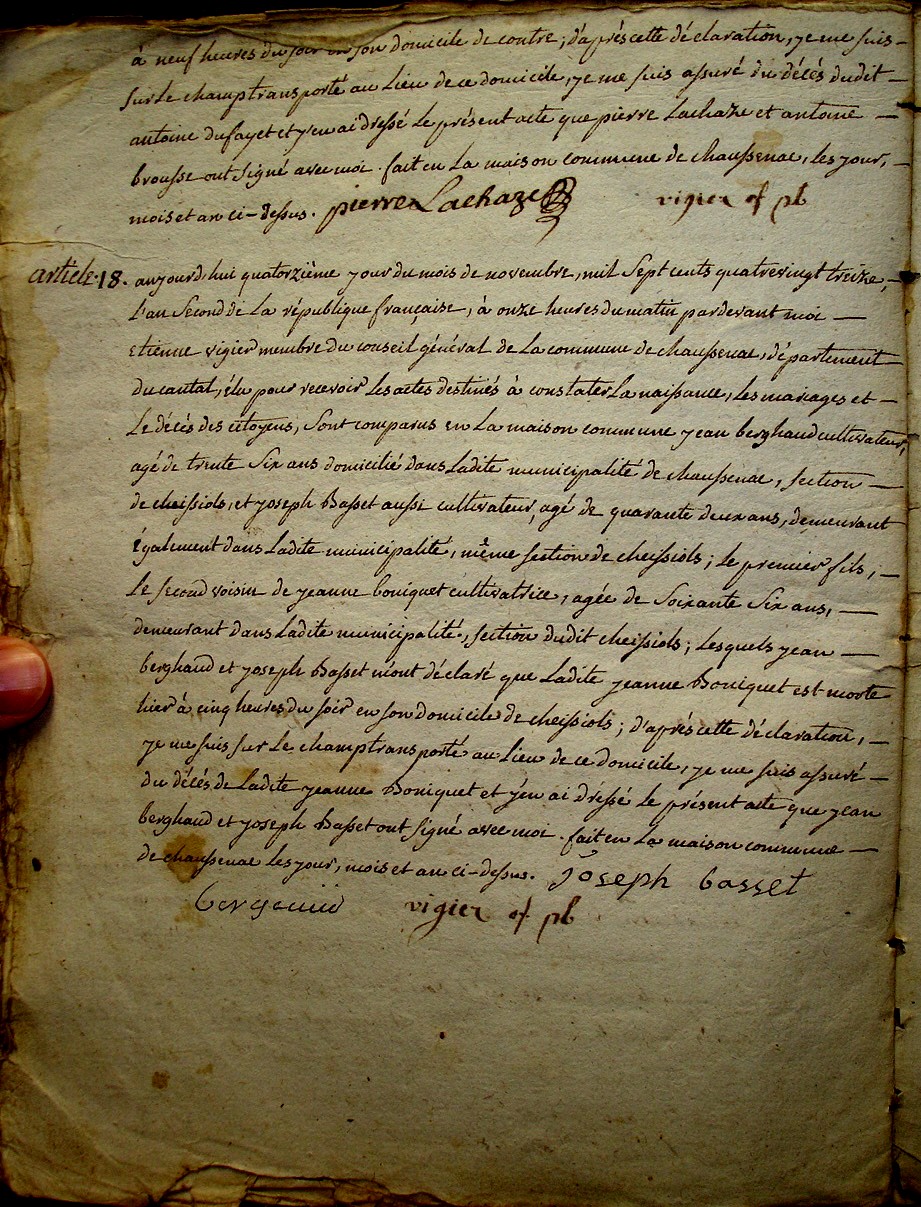 à neuf heures du soir en son domicile de contre ; d'aprés cette déclaration, je me suis -
sur le champ transporté au Lieu de ce domicile, je me suis assuré du décés dudit -
antoine dufayet et j'en ai dressé Le présent acte que pierre Lachaze et antoine -
brousse ont signé avec moi . fait en La maison commune de chaussenac, les jour, -
mois et an ci-dessus . pierre Lachaze vigier of pb
article 18. aujourd'hui quatorzième jour du mois de novembre, mil sept cents quatrevingt treize, -
L'an second de La république française, à onze heures du matin pardevant moi -
etienne vigier membre du conseil général de La commune de chaussenac, département
du cantal, élu pour recevoir Les actes destinés à constater La naissance, Les mariages et -
Le décés des citoyens, sont comparus en La maison commune jean berghaud cultivateur,
agé de trente six ans domicilié dans Ladite municipalité de chaussenac, section -
de cheissiols, et joseph Basset aussi cultivateur, agé de quarante deux ans, demeurant
également dans Ladite municipalité, même section de cheissiols ; Le premier fils, -
Le second voisin de jeanne boniquet cultivatrice, agée de soixante six ans, -
demeurant dans Ladite municipalité, section dudit cheissiols ; Lesquels jean -
berghaud et joseph Basset m'ont déclaré que Ladite jeanne Boniquet est morte
hier à cinq heures du soir en son domicile de cheissiols ; d'aprés cette déclaration, -
je me suis sur Le champ transporté au Lieu de ce domicile, je me suis assuré -
du décés de Ladite jeanne Boniquet et j'en ai dressé Le présent acte que jean
berghaud et joseph Basset ont signé avec moi . fait en La maison commune -
de chaussenac Les jour, mois et an ci-dessus . joseph basset
vigier of pb